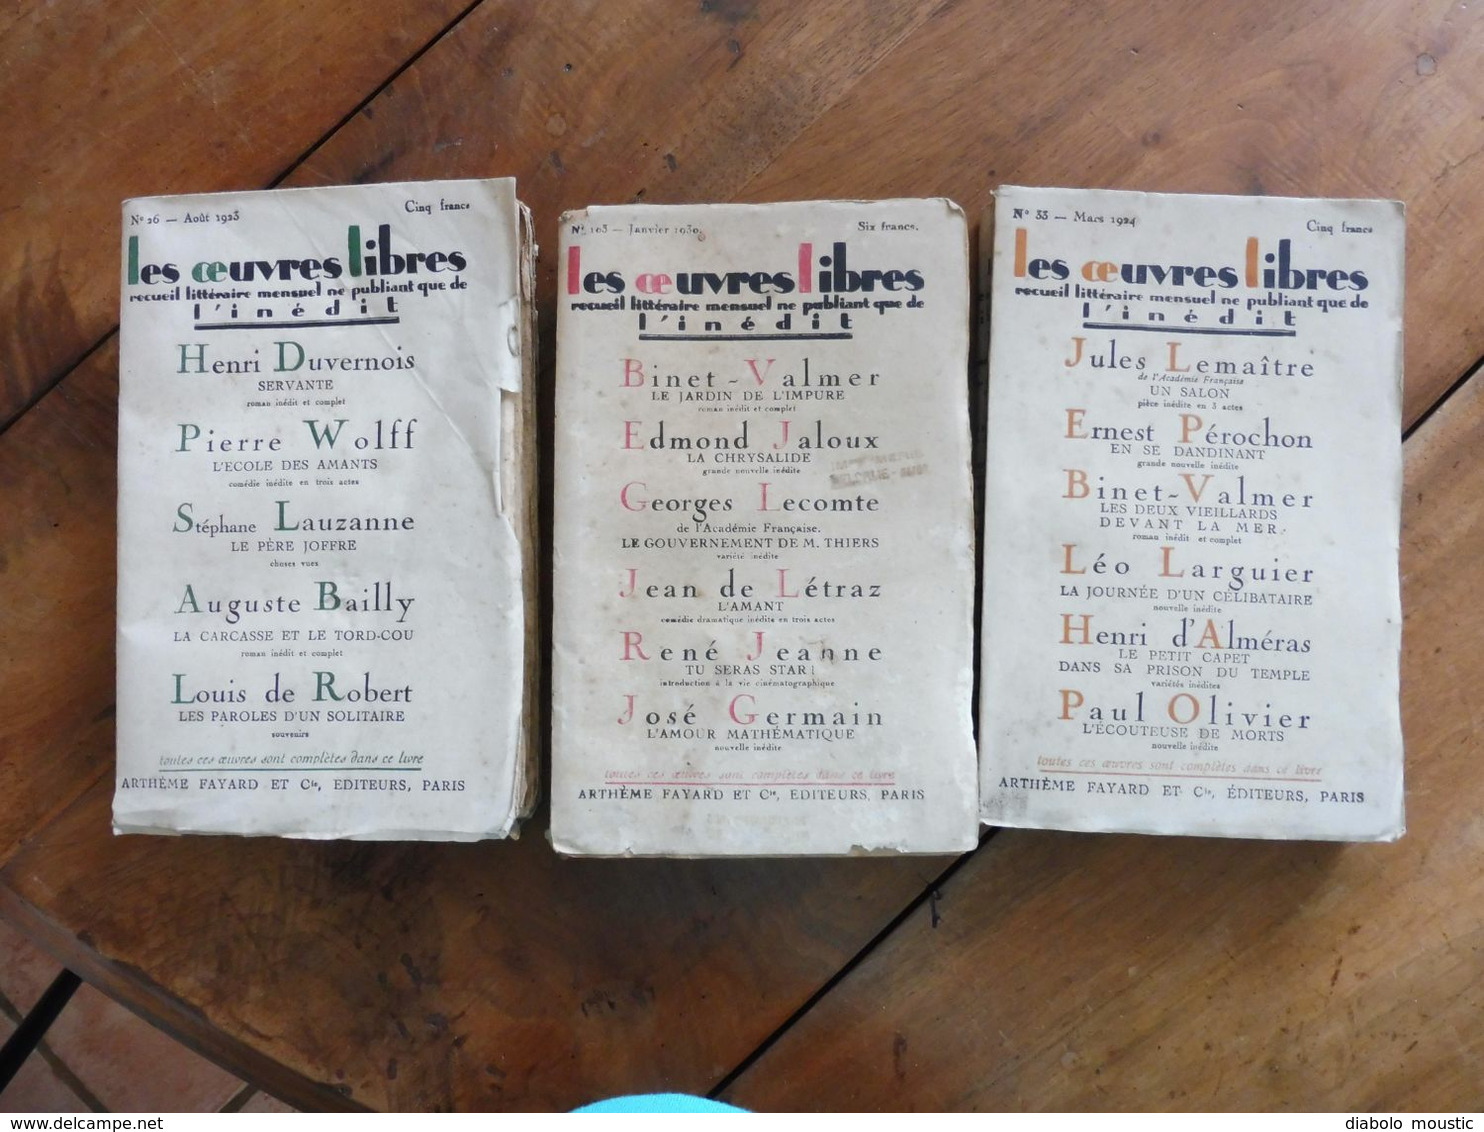 N° 26 — Août 1923 Cinq francs
les œuvres libres
recueil littéraire mensuel ne publiant que de
l'inédit
Henri Duvernois
SERVANTE
roman inédit et complet
Pierre Wolff
L'ECOLE DES AMANTS
comédie inédite en trois actes
Stéphane Lauzanne
LE PÈRE JOFFRE
choses vues
Auguste Bailly
LA CARCASSE ET LE TORD-COU
roman inédit et complet
Louis de Robert
LES PAROLES D'UN SOLITAIRE
souvenirs
toutes ces œuvres sont complètes dans ce livre
ARTHÈME FAYARD ET Cie, EDITEURS, PARIS
N° 103 — Janvier 1930. Six francs.
les œuvres libres
recueil littéraire mensuel ne publiant que de
l'inédit
Binet-Valmer
LE JARDIN DE L'IMPURE
roman inédit et complet
Edmond Jaloux
LA CHRYSALIDE
grande nouvelle inédite
Georges Lecomte
de l'Académie Française.
LE GOUVERNEMENT DE M. THIERS
variété inédite
Jean de Létraz
L'AMANT
comédie dramatique inédite en trois actes
René Jeanne
TU SERAS STAR!
introduction à la vie cinématographique
José Germain
L'AMOUR MATHÉMATIQUE
nouvelle inédite
toutes ces œuvres sont complètes dans ce livre
ARTHÈME FAYARD ET Cie, EDITEURS, PARIS
N° 33 — Mars 1924 Cinq francs
les œuvres libres
recueil littéraire mensuel ne publiant que de
l'inédit
Jules Lemaître
de l'Académie Française
UN SALON
pièce inédite en 3 actes
Ernest Pérochon
EN SE DANDINANT
grande nouvelle inédite
Binet-Valmer
LES DEUX VIEILLARDS
DEVANT LA MER
roman inédit et complet
Léo Larguier
LA JOURNÉE D'UN CÉLIBATAIRE
nouvelle inédite
Henri d'Alméras
LE PETIT CAPET
DANS SA PRISON DU TEMPLE
variétés inédites
Paul Olivier
L'ÉCOUTEUSE DE MORTS
nouvelle inédite
toutes ces œuvres sont complètes dans ce livre
ARTHÈME FAYARD ET Cie, ÉDITEURS, PARIS
www.delcampe.net diabolo moustic